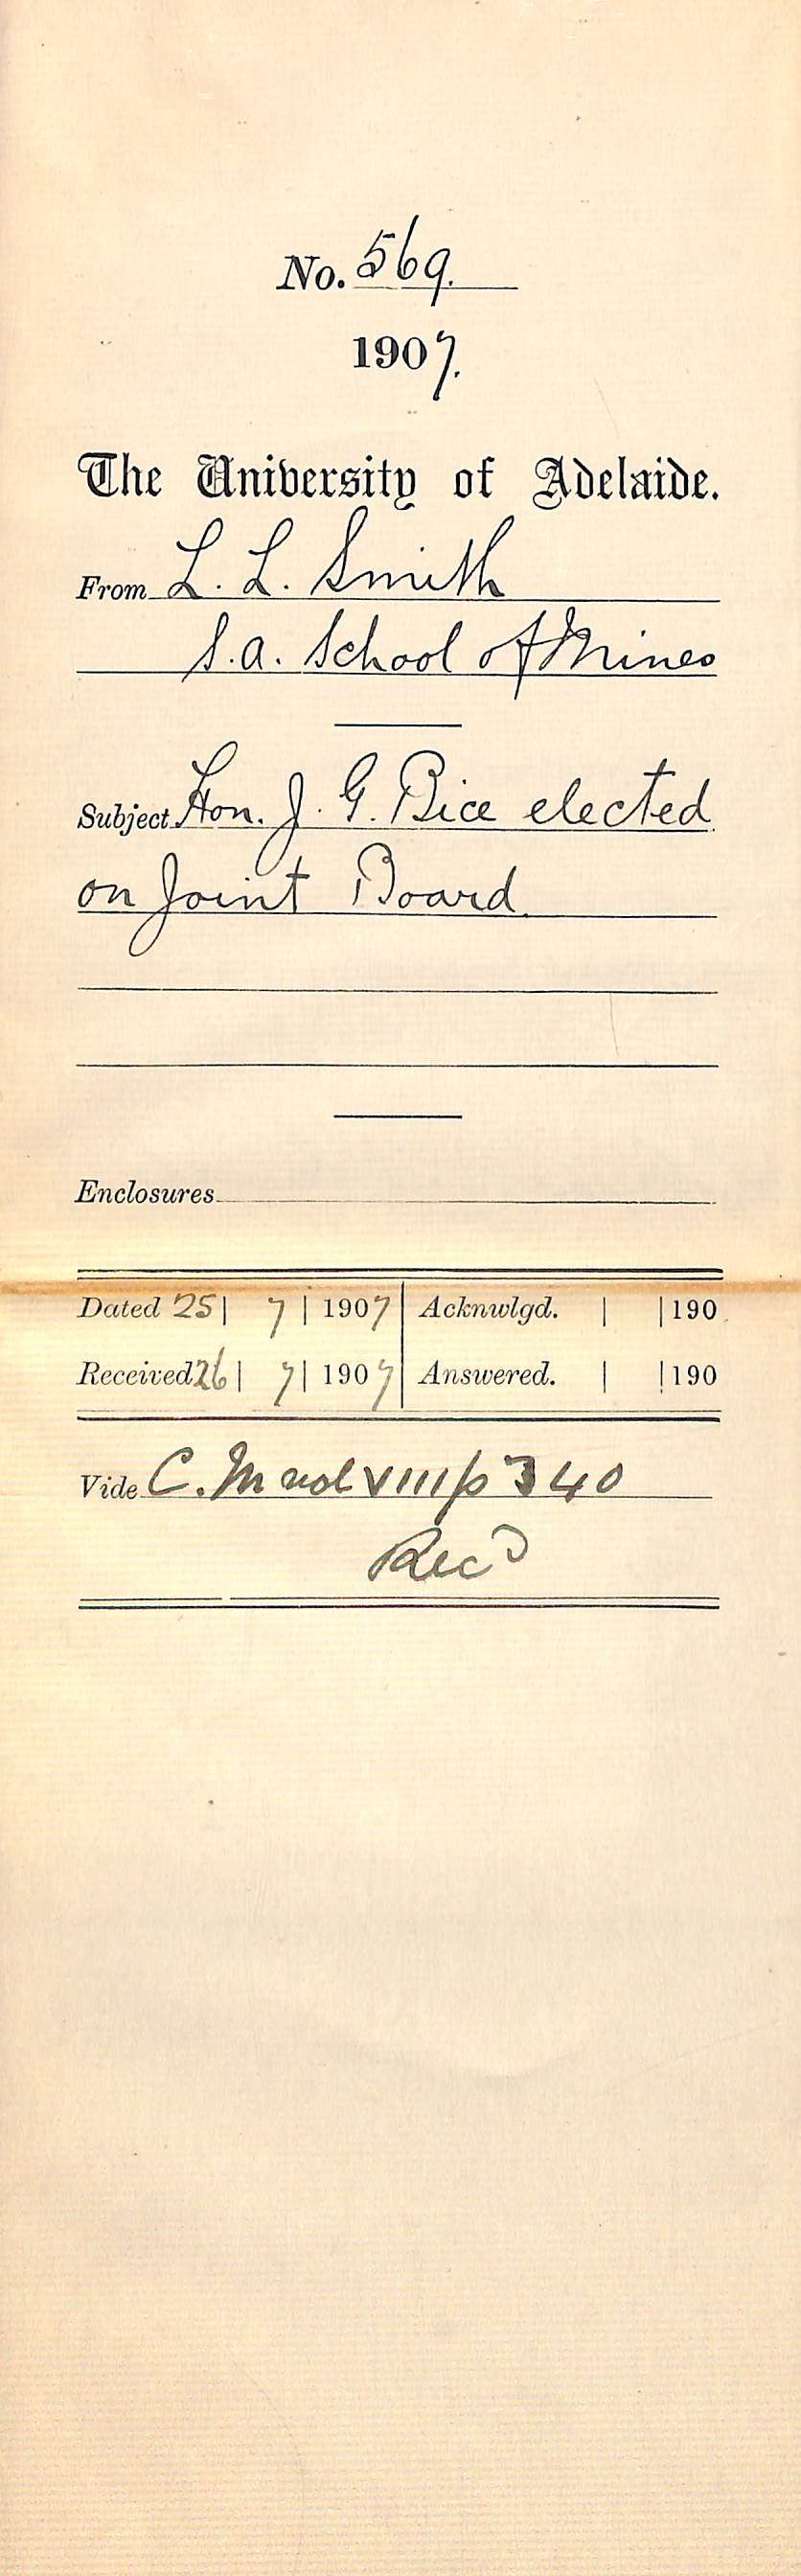 No. 569.
1907.
The University of Adelaide.
From L. L. Smith
S.A. School of Mines
Subject Hon. J. G. Bice elected
on Joint Board.
Enclosures
Dated 25 | 7 | 1907 | Acknwlgd. | | 190
Received 26 | 7 | 1907 | Answered. | | 190
Vide C. M vol VIII p 340
Recd